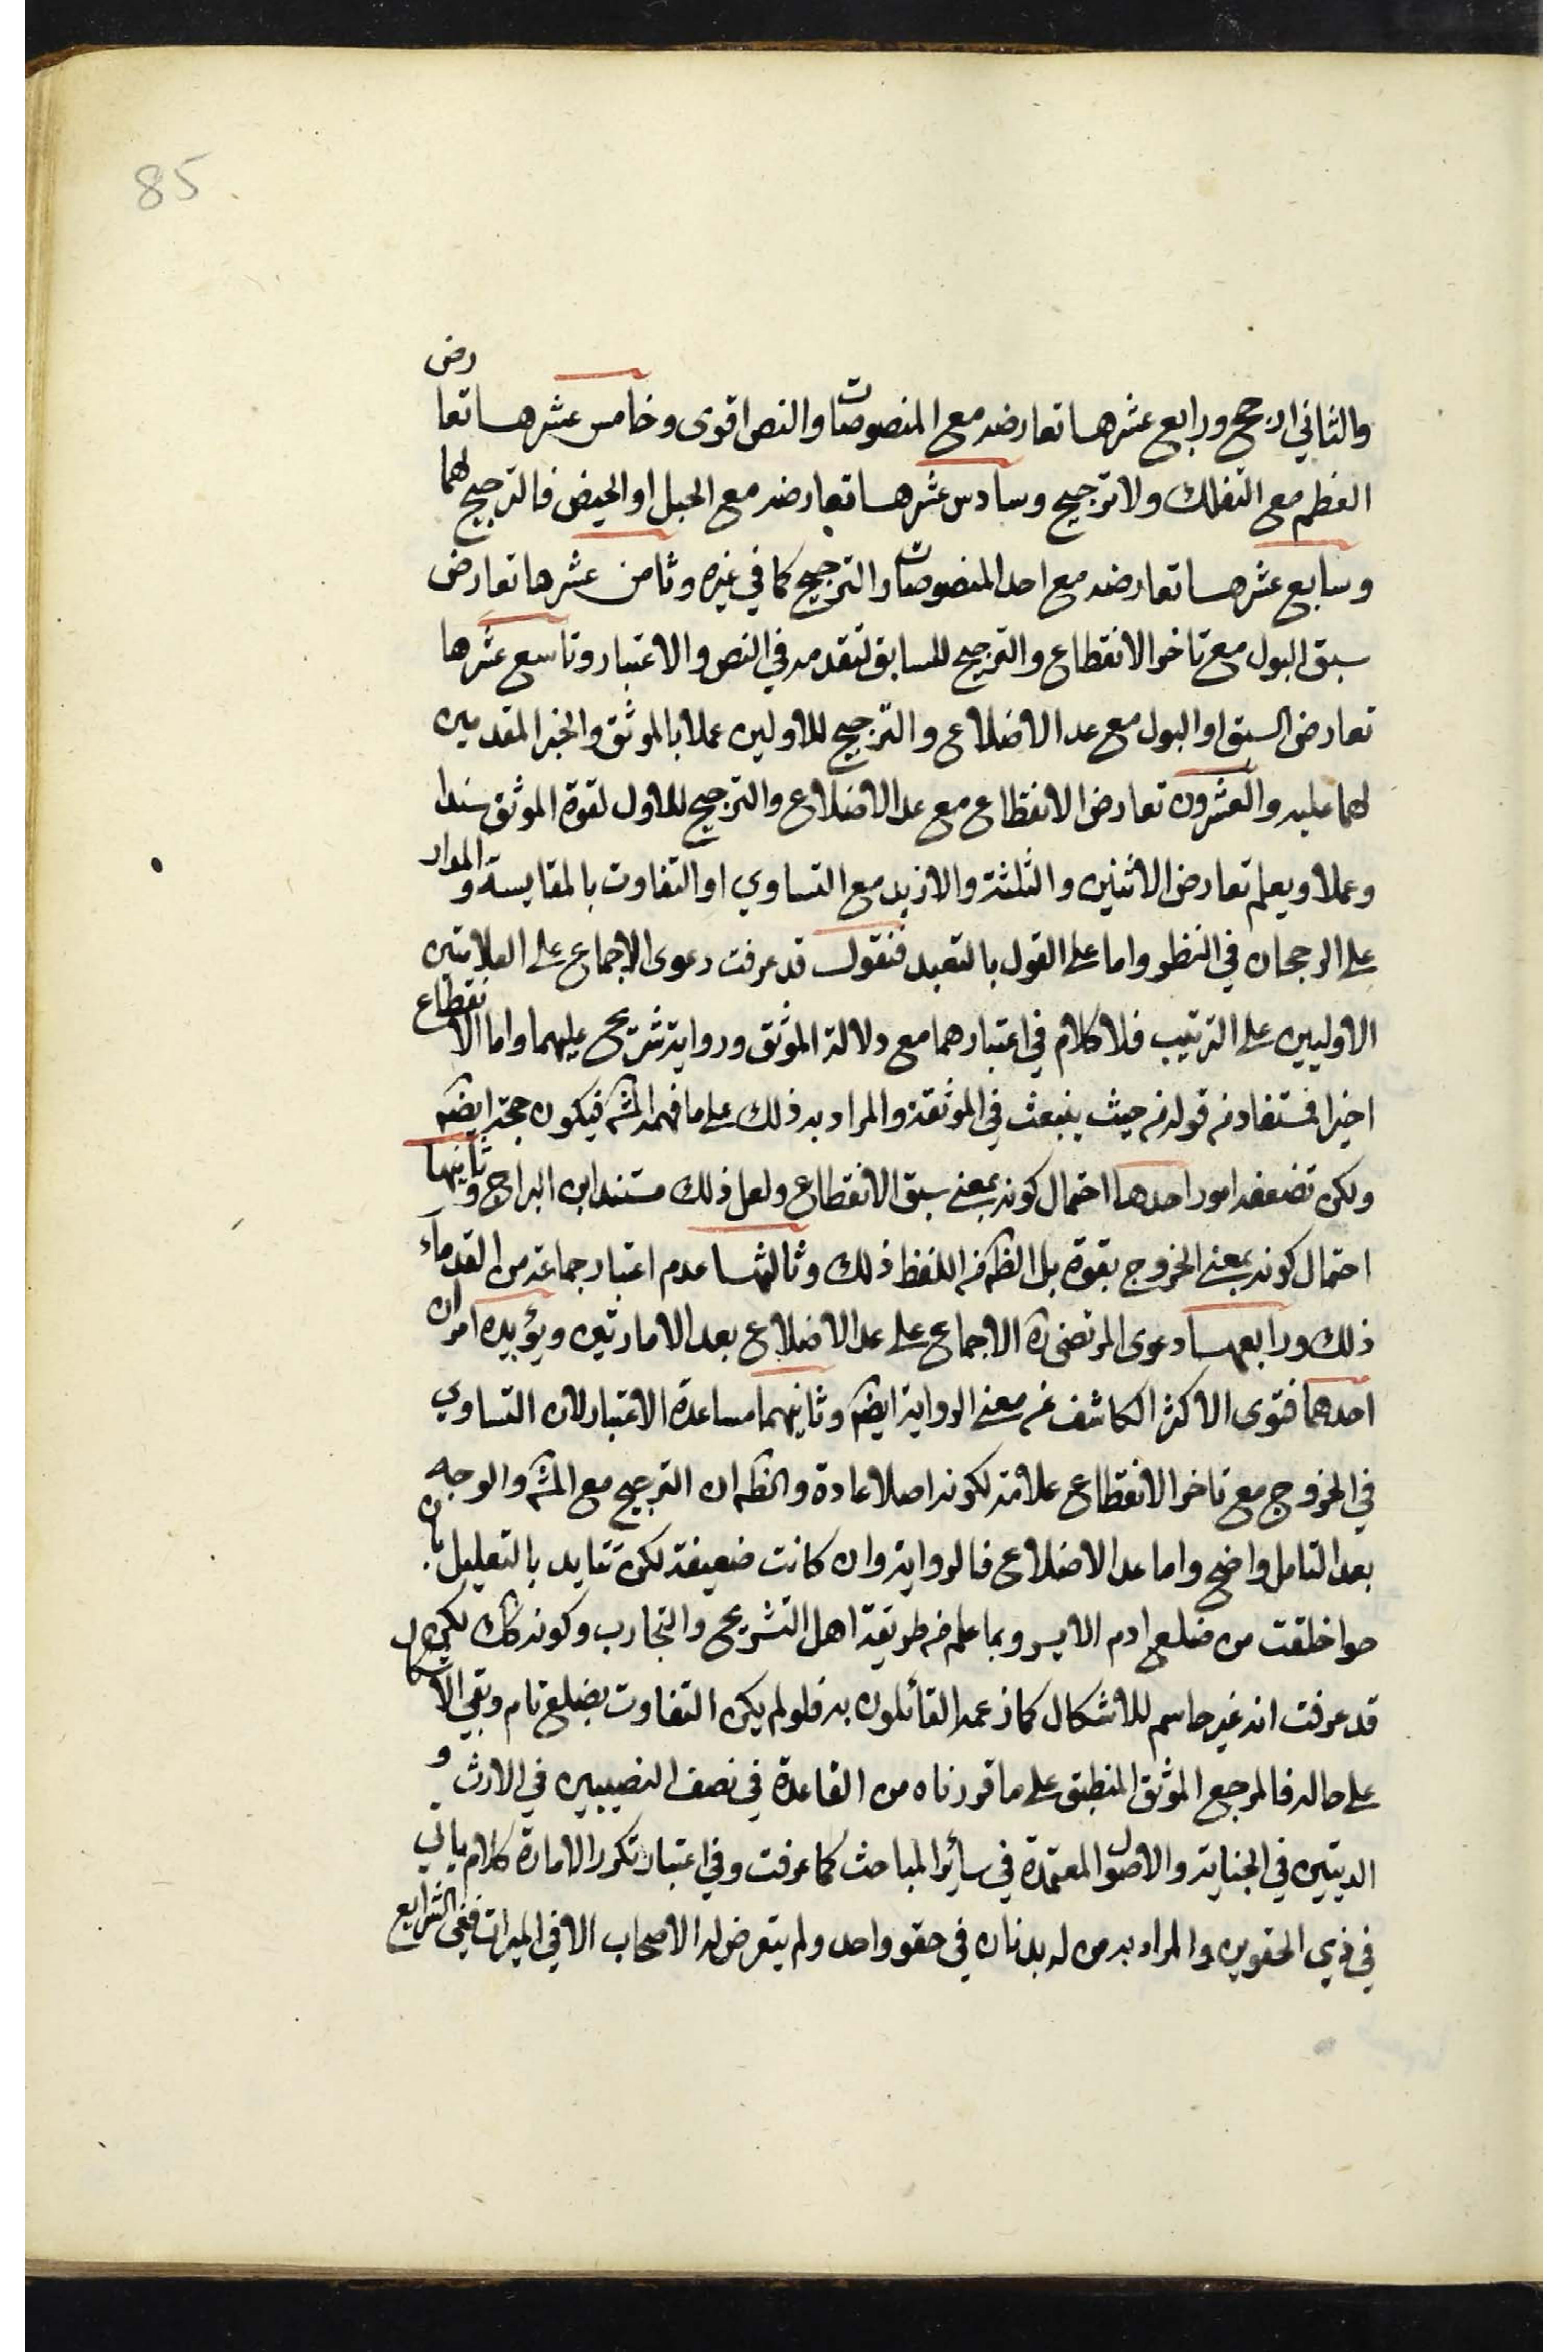 85
والثاني ارجح ورابع عشرها تعارضه مع المنصوصات والنص اقوى وخامس عشرها تعارض
العظم مع التفلك ولا ترجيح وسادس عشرها تعارضه مع الحبل او الحيض فالترجيح لهما
وسابع عشرها تعارضه مع احد المنصوصات والترجيح كما في غيره وثامن عشرها تعارض
سبق البول مع تاخر الانقطاع والترجيح للسابق لتقدمه في النص والاعتبار وتاسع عشرها
تعارض السبق او البول مع عد الاضلاع والترجيح للاولين عملا بالموثق والخبر المقدمين
لهما عليه والعشرون تعارض الانقطاع مع عد الاضلاع والترجيح للاول لقوة الموثق سندا
وعملا ويعلم تعارض الاثنين والثلثة والازيد مع التساوي او التفاوت بالمقايسة والمدار
على الرجحان في النظر واما على القول بالتعبد فنقول قد عرفت دعوى الاجماع على العلامتين
الاوليين على الترتيب فلا كلام في اعتبارهما مع دلالة الموثق ورواية شريح عليهما واما الانقطاع
اخيرا فمستفاد من قوله من حيث ينبعث في الموثقة والمراد به ذلك على ما فهمه المشه فيكون حجة ايضه
ولكن تضعفه امور احدها احتمال كونه بمعنى سبق الانقطاع ولعل ذلك مستند ابن البراج وثانيها
احتمال كونه بمعنى الخروج بقوة بل الظه من اللفظ ذلك وثالثها عدم اعتبار جماعة من القدماء
ذلك ورابعها دعوى المرتضى ره الاجماع على عد الاضلاع بعد الامارتين ويؤيده امران
احدهما فتوى الاكثر الكاشف عن معنى الرواية ايضه وثانيهما مساعدة الاعتبار لان التساوي
في الخروج مع تاخر الانقطاع علامة لكونه اصلا عادة والظه ان الترجيح مع المشه والوجه
بعد التامل واضح واما عد الاضلاع فالرواية وان كانت ضعيفة لكن تتايد بالتعليل بان
حوا خلقت من ضلع ادم الايسر وبما علم من طريقة اهل التشريح والتجارب وكونه كك لكن
قد عرفت انه غير حاسم للاشكال كما زعمه القائلون به فلو لم يكن التفاوت بضلع تام وبقي الاشكال
على حاله فالمرجع الموثق المنطبق على ما قررناه من القاعدة في نصف النصيبين في الارث و
الديتين في الجناية والاصول المعتمدة في سائر المباحث كما عرفت وفي اعتبار تكرر الامارة كلام ياتي
في ذي الحقوين والمراد به من له بدنان في حقو واحد ولم يتعرض له الاصحاب الا في الميراث ففي الشرايع